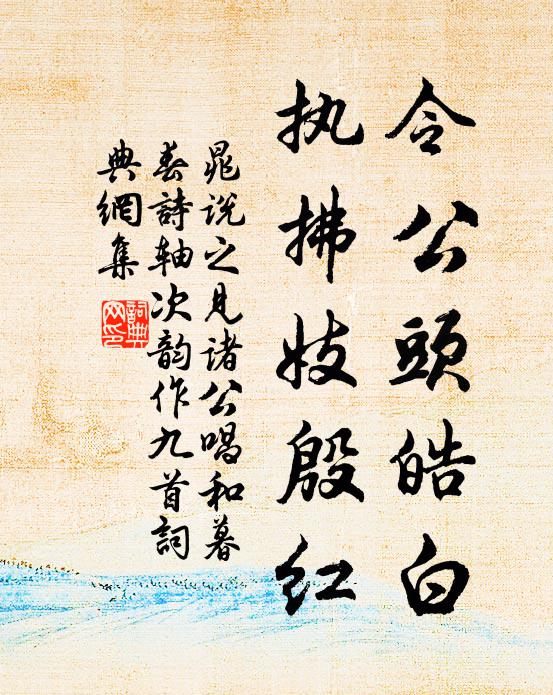 令公頭皓白
执拂妓殷红
晁说之见诸公唱和暮
春詩轴次韵作九首詞
典網集
詞典
网印